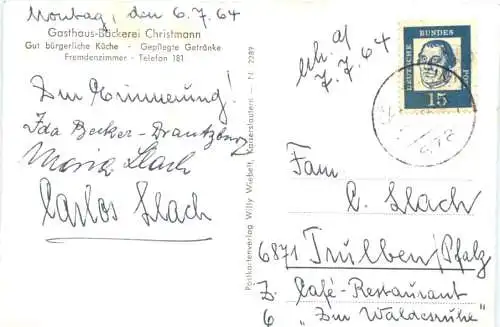 Montag, den 6.7.64
Gasthaus-Bäckerei Christmann
Gut bürgerliche Küche - Gepflegte Getränke
Fremdenzimmer - Telefon 181
Zur Erinnerung!
Ida Becker-
Maria Llach
Carlos Llach
Postkartenverlag Willy Wiebelt, Kaiserslautern - N. 2289
erh. a/
7.7.64
DEUTSCHE BUNDESPOST
15
Fam
C. Llach
6871 Trulben/Pfalz
Z. Café-Restaurant
6 "Zur Waldesruhe"